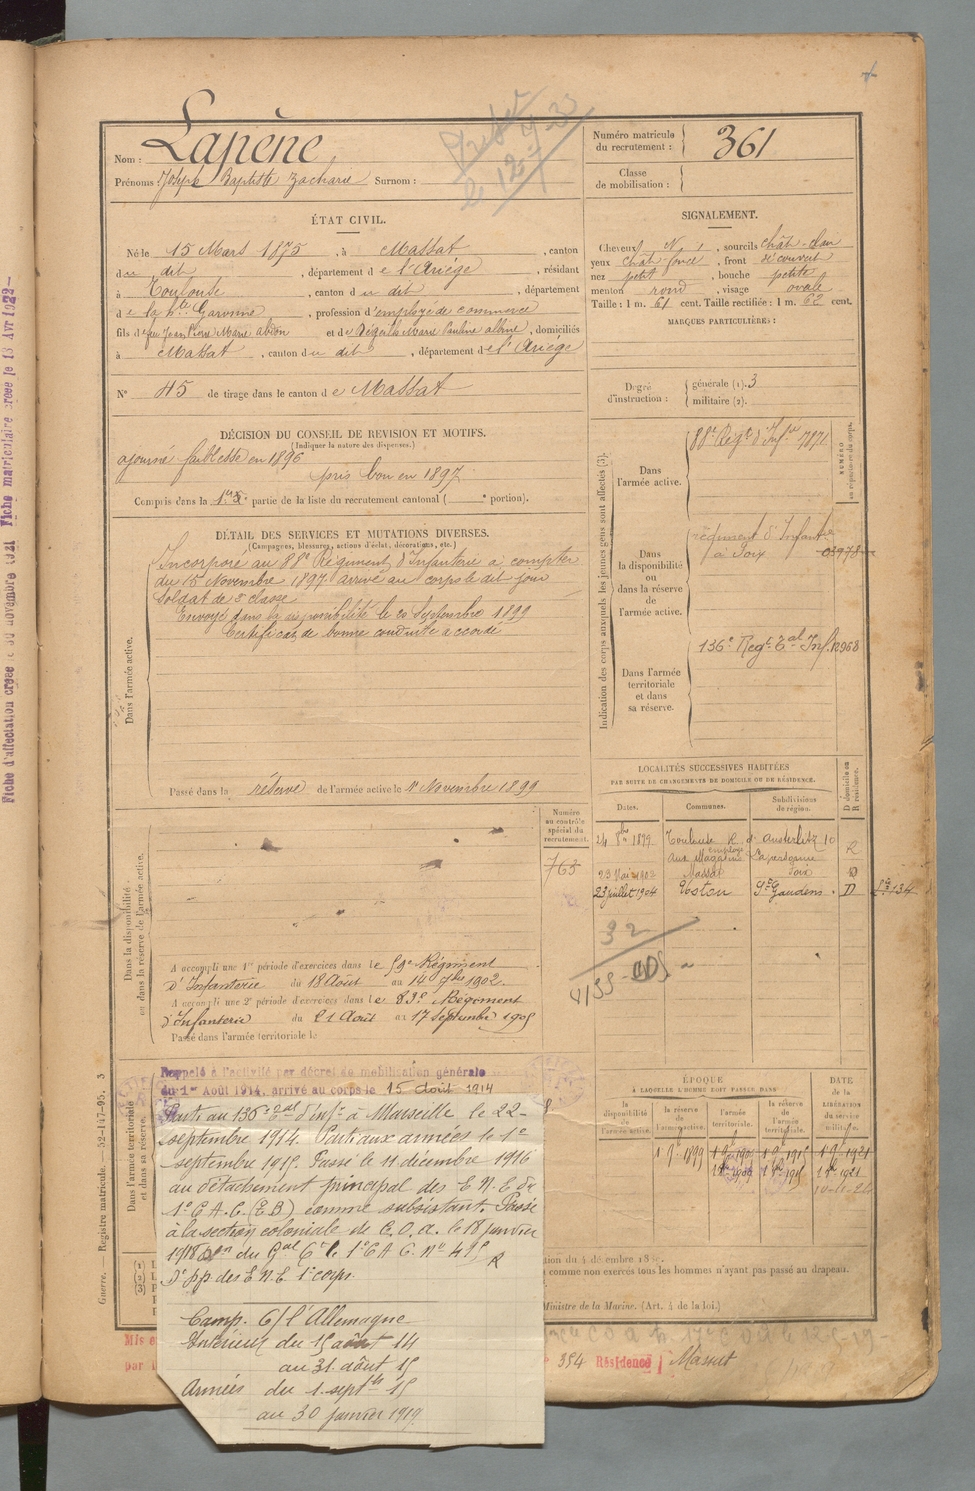 Lapène
Nom :
Prénoms : Joseph Baptiste Zacharie Surnom :
Numéro matricule
du recrutement : 361
Classe
de mobilisation :
ÉTAT CIVIL.
Né le 15 Mars 1875, à Massat, canton
du dit, département de l'Ariège, résidant
à Toulouse, canton du dit, département
de la Hte Garonne, profession d'employé de commerce
fils de feu Jean Pierre Marie Abdon et de Dégeilh Marie Pauline Albine, domiciliés
à Massat, canton du dit, département de l'Ariège
N° 45 de tirage dans le canton de Massat
SIGNALEMENT.
Cheveux N, sourcils chât-clair
yeux chât-foncé, front découvert
nez petit, bouche petite
menton rond, visage ovale
Taille : 1 m. 61 cent. Taille rectifiée : 1 m. 62 cent.
MARQUES PARTICULIÈRES :
Degré
d'instruction :
générale (1). 3
militaire (2).
DÉCISION DU CONSEIL DE REVISION ET MOTIFS.
(Indiquer la nature des dispenses.)
ajourné faiblesse en 1896
pris bon en 1897
Compris dans la 1re partie de la liste du recrutement cantonal ( e portion).
DÉTAIL DES SERVICES ET MUTATIONS DIVERSES.
(Campagnes, blessures, actions d'éclat, décorations, etc.)
Dans l'armée active.
Incorporé au 88e Régiment d'Infanterie à compter
du 15 Novembre 1897 arrivé au corps le dit jour
Soldat de 2e classe
Envoyé dans la disponibilité le 20 Septembre 1899
Certificat de bonne conduite accordé
Passé dans la réserve de l'armée active le 1er Novembre 1899
Indication des corps auxquels les jeunes gens sont affectés (3).
Dans
l'armée active.
88e Régt d'Infie 7871
NUMÉRO
au répertoire du corps.
Dans
la disponibilité
ou
dans la réserve
de
l'armée active.
régiment d'Infante
à Foix 03978
Dans l'armée
territoriale
et dans
sa réserve.
136e Regt Tal Inf. 12968
LOCALITÉS SUCCESSIVES HABITÉES
PAR SUITE DE CHANGEMENTS DE DOMICILE OU DE RÉSIDENCE.
Dates.
Communes.
Subdivisions
de région.
D domicile ou
R résidence.
24 8bre 1899 Toulouse R. d'Austerlitz 10 R
employé
aux Magasins Lapersonne
23 Mai 1903 Massat Foix D
23 juillet 1904 Aston St Gaudens D
Dans la disponibilité
ou dans la réserve de l'armée active.
Numéro
au contrôle
spécial du
recrutement.
763
32
A accompli une 1re période d'exercices dans le 59e Régiment
d'Infanterie du 18 Août au 14 7bre 1902.
A accompli une 2e période d'exercices dans le 83e Régiment
d'Infanterie du 21 Août au 17 Septembre 1905
Passé dans l'armée territoriale le
Dans l'armée territoriale
et dans sa réserve.
Rappelé à l'activité par décret de mobilisation générale
du 1er Août 1914, arrivé au corps le 15 Août 1914
Parti au 136e Tal d'infie à Marseille le 22
septembre 1914. Parti aux armées le 1er
septembre 1915. Passé le 11 décembre 1916
au détachement principal des E.N.E du
1er C.A.C. (E B) comme subsistant. Passé
à la section coloniale de C.O.A. le 18 janvier
1918 du Gal Ct le 1er C A C. No 495
D. pp. des E.N.E. 1er corps.
Camp. C/ l'Allemagne
Intérieur du 15 août 14
au 31 août 15
Armées du 1. septbre 15
au 30 janvier 1919.
ÉPOQUE
À LAQUELLE L'HOMME DOIT PASSER DANS
la
disponibilité
de
l'armée active.
la
réserve de
l'armée active.
l'armée
territoriale.
la
réserve de
l'armée
territoriale.
DATE
de la
LIBÉRATION
du service
militaire.
Guerre. — Registre matricule. — 52-147-95. 3
tion du 4 décembre
comme non exercés tous les hommes n'ayant pas passé au drapeau.
Ministre de la Marine. (Art. 4 de la loi.)
Mis e
par l
354 Résidence Massat
Fiche d'affectation créée novembre 1921 Fiche matriculaire créée le 13 AVR 1922